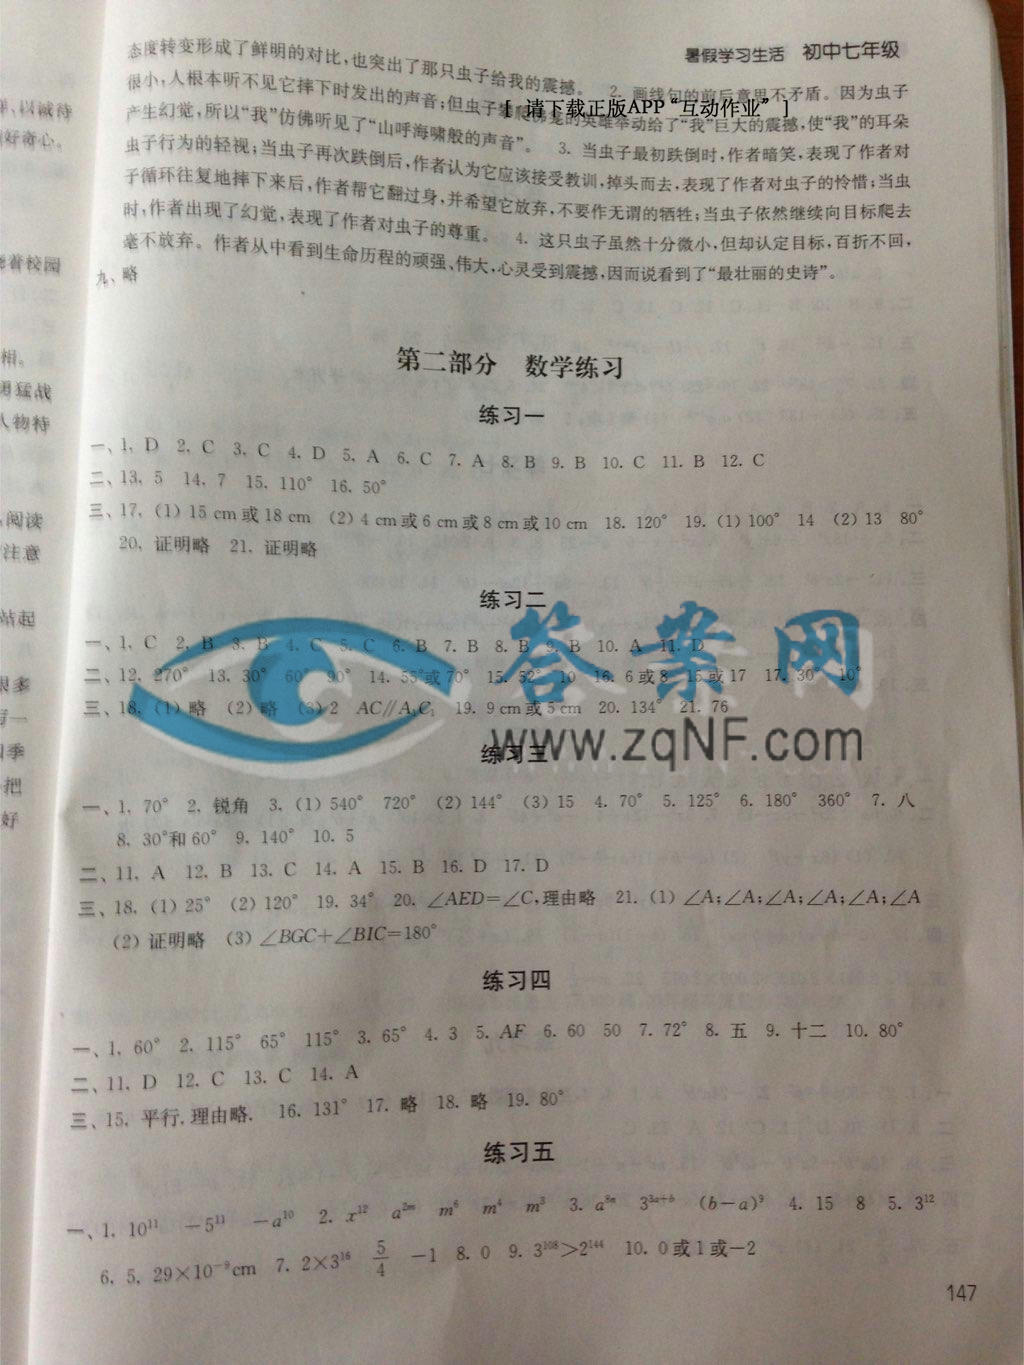 暑假学习生活 初中七年级
态度转变形成了鲜明的对比，也突出了那只虫子给我的震撼。 2. 画线句的前后意思不矛盾。因为虫子
很小，人根本听不见它摔下时发出的声音；但虫子攀爬佛龛的英雄举动给了“我”巨大的震撼，使“我”的耳朵
[ 请下载正版APP“互动作业” ]
产生幻觉，所以“我”仿佛听见了“山呼海啸般的声音”。 3. 当虫子最初跌倒时，作者暗笑，表现了作者对
虫子行为的轻视；当虫子再次跌倒后，作者认为它应该接受教训，掉头而去，表现了作者对虫子的怜惜；当虫
子循环往复地摔下来后，作者帮它翻过身，并希望它放弃，不要作无谓的牺牲；当虫子依然继续向目标爬去
时，作者出现了幻觉，表现了作者对虫子的尊重。 4. 这只虫子虽然十分微小，但却认定目标，百折不回，
毫不放弃。作者从中看到生命历程的顽强、伟大，心灵受到震撼，因而说看到了“最壮丽的史诗”。
九、略
第二部分 数学练习
练习一
一、1. D 2. C 3. C 4. D 5. A 6. C 7. A 8. B 9. B 10. C 11. B 12. C
二、13. 5 14. 7 15. 110° 16. 50°
三、17. (1) 15 cm或18 cm (2) 4 cm或6 cm或8 cm或10 cm 18. 120° 19. (1) 100° 14 (2) 13 80°
20. 证明略 21. 证明略
练习二
一、1. C 2. B 3. B 4. C 5. C 6. B 7. B 8. B 9. B 10. A 11. D
二、12. 270° 13. 30° 60° 90° 14. 55°或70° 15. 52° 10 16. 6或8 15或17 17. 30° 10°
三、18. (1) 略 (2) 略 (3) 2 AC∥A₁C₁ 19. 9 cm或5 cm 20. 134° 21. 76
答案网
www.zqNF.com
练习三
一、1. 70° 2. 锐角 3. (1) 540° 720° (2) 144° (3) 15 4. 70° 5. 125° 6. 180° 360° 7. 八
8. 30°和60° 9. 140° 10. 5
二、11. A 12. B 13. C 14. A 15. B 16. D 17. D
三、18. (1) 25° (2) 120° 19. 34° 20. ∠AED=∠C，理由略 21. (1) ∠A；∠A；∠A；∠A；∠A；∠A
(2) 证明略 (3) ∠BGC+∠BIC=180°
练习四
一、1. 60° 2. 115° 65° 115° 3. 65° 4. 3 5. AF 6. 60 50 7. 72° 8. 五 9. 十二 10. 80°
二、11. D 12. C 13. C 14. A
三、15. 平行. 理由略. 16. 131° 17. 略 18. 略 19. 80°
练习五
一、1. 10¹¹ −5¹¹ −a¹⁰ 2. x¹² a²ᵐ m⁶ m⁴ m³ 3. a⁸ⁿ 3³ᵃ⁺ᵇ (b−a)⁹ 4. 15 8 5. 3¹²
6. 5. 29×10⁻⁹cm 7. 2×3¹⁶ 5/4 −1 8. 0 9. 3¹⁰⁸>2¹⁴⁴ 10. 0或1或−2
147
以诚待
好奇心。
着校园
相。
勇猛战
人物特
阅读
注意
站起
很多
一
四季
把
好